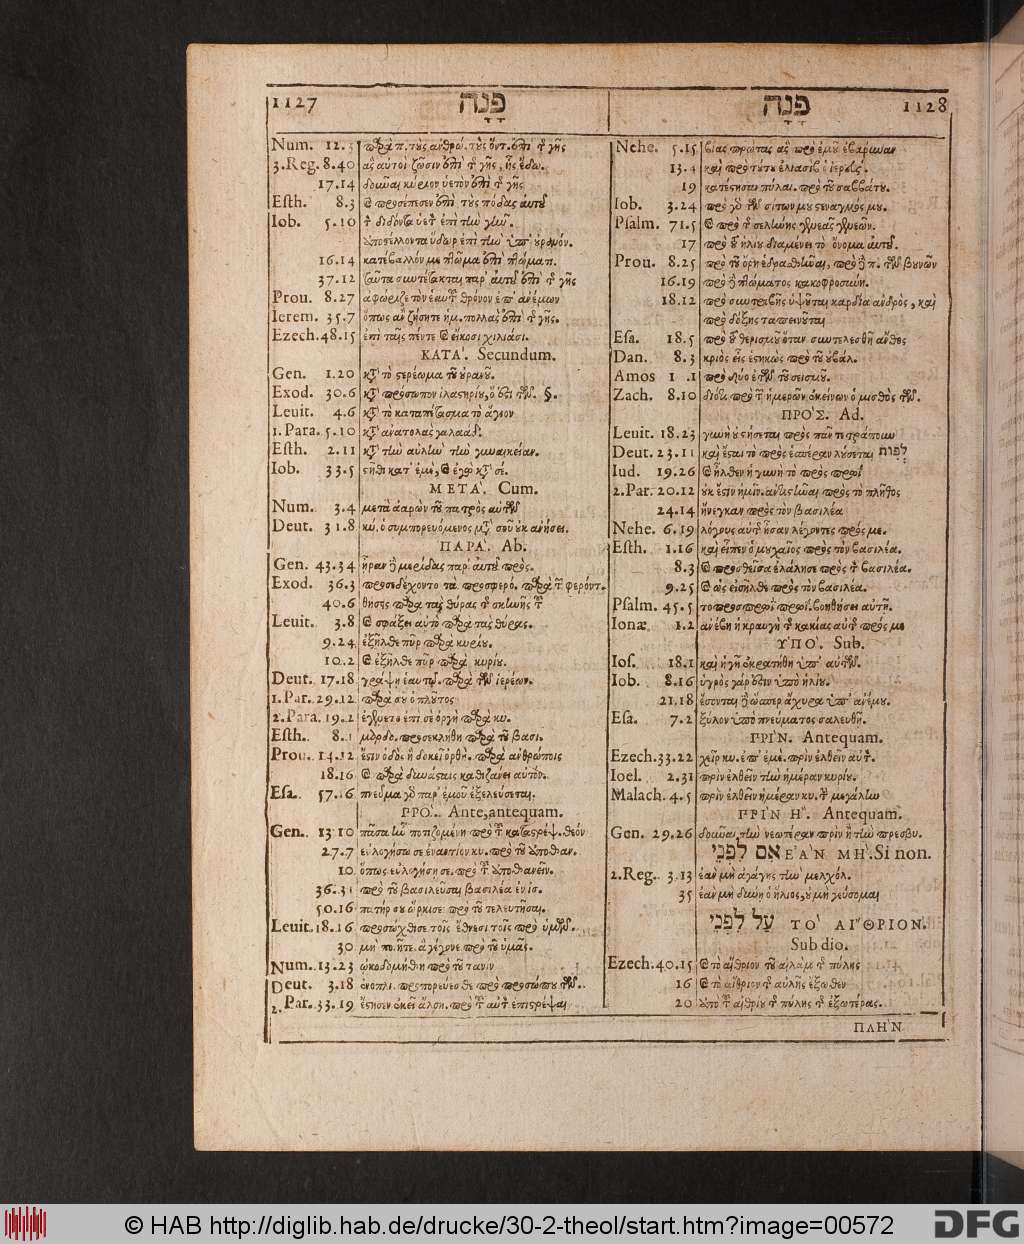 1127 פָּנָה
Num. 12.3 παρὰ π. τοὺς ἀνθρώ. τοὺς ὄντ. ἐπὶ τῆς γῆς
3. Reg. 8.40 ἃς αὐτοὶ ζῶσιν ἐπὶ τῆς γῆς, ἧς ἔδω.
17.14 δοῦναι κύριον ὑετὸν ἐπὶ τῆς γῆς
Esth. 8.3 καὶ προσέπεσεν ἐπὶ τοὺς πόδας αὐτοῦ
Iob. 5.10 τὸν διδόντα ὑετ. ἐπὶ τὴν γῆν.
ἀποστέλλοντα ὕδωρ ἐπὶ τὴν ὑπ' οὐρανόν.
16.14 κατέβαλλόν με πτῶμα ἐπὶ πτῶμα π.
37.12 ταῦτα συντέτακται παρ' αὐτοῦ ἐπὶ τῆς γῆς
Prou. 8.27 ἀφώριζε τὸν ἑαυτοῦ θρόνον ἐπ' ἀνέμων
Ierem. 35.7 ὅπως ἂν ζήσητε ἡμ. πολλὰς ἐπὶ τῆς γῆς.
Ezech. 48.15 ἐπὶ ταῖς πέντε καὶ εἴκοσι χιλιάσι.
ΚΑΤΑ'. Secundum.
Gen. 1.20 κατὰ τὸ στερέωμα τοῦ οὐρανοῦ.
Exod. 30.6 κατὰ πρόσωπον ἱλαστηρίου, ὅ ἐστι τῶν. §.
Leuit. 4.6 κατὰ τὸ καταπέτασμα τὸ ἅγιον
1. Para. 5.10 κατ' ἀνατολὰς γαλαάδ.
Esth. 2.11 κατὰ τὴν αὐλὴν τὴν γυναικείαν.
Iob. 33.5 στῆθι κατ' ἐμὲ, καὶ ἐγὼ κατὰ σέ.
ΜΕΤΑ'. Cum.
Num. 3.4 μετὰ ἀαρὼν τοῦ πατρὸς αὐτῶν
Deut. 31.8 κύ. ὁ συμπορευόμενος μετὰ σοῦ οὐκ ἀνήσει.
ΠΑΡΑ'. Ab.
Gen. 43.34 ἦραν δὲ μερίδας παρ' αὐτοῦ πρὸς.
Exod. 36.3 προσεδέχοντο τὰ προσφερό. παρὰ τῶν φερόντ.
40.6 θήσεις παρὰ τὰς θύρας τῆς σκηνῆς τοῦ
Leuit. 3.8 καὶ σφάξει αὐτὸ παρὰ τὰς θύρας.
9.24 ἐξῆλθε πῦρ παρὰ κυρίου.
10.2 καὶ ἐξῆλθε πῦρ παρὰ κυρίου.
Deut. 17.18 γράψει ἑαυτῷ. παρὰ τῶν ἱερέων.
1. Par. 29.12 παρὰ σοῦ ὁ πλοῦτος
2. Para. 19.2 ἐγένετο ἐπὶ σε ὀργὴ παρὰ κυ.
Esth. 8.1 μαρδο. προσεκλήθη παρὰ τοῦ βασι.
Prou. 14.12 ἔστιν ὁδὸς ἣ δοκεῖ ὀρθὴ. παρὰ ἀνθρώποις
18.16 καὶ παρὰ δυνάσταις καθιζάνει αὐτόν.
Esa. 57.16 πνεῦμα γὰρ παρ' ἐμοῦ ἐξελεύσεται.
ΠΡΟ'. Ante, antequam.
Gen. 13 10 πᾶσα ἦν ποτιζομένη πρὸ τοῦ καταστρέψ. θεόν
27.7 εὐλογήσω σε ἐναντίον κυ. πρὸ τοῦ ἀποθαν.
10 ὅπως εὐλογήσῃ σε. πρὸ τοῦ ἀποθανεῖν.
36.31 πρὸ τοῦ βασιλεῦσαι βασιλέα ἐν ἰσ.
50.16 πατήρ σου ὥρκισε πρὸ τοῦ τελευτῆσαι.
Leuit. 18.16 προσώχθισε τοῖς ἔθνεσι τοῖς πρὸ ὑμῶν.
30 μὴ πο. ἥτε. ἃ γέγονε πρὸ τοῦ ὑμᾶς.
Num. 13.23 ᾠκοδομήθη πρὸ τοῦ τανιν
Deut. 3.18 ἐνοπλι. προπορεύεσθε πρὸ προσώπου τῶν.
2. Par. 33.19 ἔστησεν ἐκεῖ ἄλση. πρὸ τοῦ αὐτὸν ἐπιστρέψαι
פָּנָה 1128
Nehe. 5.15 βίας πρώτας ἃς πρὸ ἐμοῦ ἐβάρυναν
13.4 καὶ πρὸ τούτου ἐλιασὶβ ὁ ἱερεύς.
19 κατέστησαν πύλαι. πρὸ τοῦ σαββάτου.
Iob. 3.24 πρὸ γὰρ τῶν σίτων μου στεναγμός μου.
Psalm. 71.5 καὶ πρὸ τῆς σελήνης γενεὰς γενεῶν.
17 πρὸ τοῦ ἡλίου διαμένει τὸ ὄνομα αὐτοῦ.
Prou. 8.25 πρὸ τοῦ ὄρη ἑδρασθῆναι, πρὸ δὲ π. τῶν βουνῶν
16.19 πρὸ δὲ πτώματος κακοφροσύνη.
18.12 πρὸ συντριβῆς ὑψοῦται καρδία ἀνδρὸς, καὶ
πρὸ δόξης ταπεινοῦται
Esa. 18.5 πρὸ τοῦ θερισμοῦ ὅταν συντελεσθῇ ἄνθος
Dan. 8.3 κριὸς εἷς ἑστηκὼς πρὸ τοῦ οὐβάλ.
Amos 1 .1 πρὸ δύο ἐτῶν τοῦ σεισμοῦ.
Zach. 8.10 διότι πρὸ τῶν ἡμερῶν ἐκείνων ὁ μισθὸς τῶν.
ΠΡΟ'Σ. Ad.
Leuit. 18.23 γυνὴ οὐ στήσεται πρὸς πᾶν τετράπουν
Deut. 23.11 καὶ ἔσται τὸ πρὸς ἑσπέραν λούσεται לִפְנוֹת
Iud. 19.26 καὶ ἦλθεν ἡ γυνὴ τὸ πρὸς πρωῒ
2. Par. 20.12 οὐκ ἔστιν ἡμῖν. ἀντιστῆναι πρὸς τὸ πλῆθος
24.14 ἤνεγκαν πρὸς τὸν βασιλέα
Nehe. 6.19 λόγους αὐτοῦ ἦσαν λέγοντες πρός με.
Esth. 1.16 καὶ εἶπεν ὁ μουχαῖος πρὸς τὸν βασιλέα.
8.3 καὶ προσθεῖσα ἐλάλησε πρὸς τὸν βασιλέα.
9.25 καὶ ὡς εἰσῆλθε πρὸς τὸν βασιλέα.
Psalm. 45.5 τὸ πρὸς πρωῒ πρωΐ. βοηθήσει αὐτῇ.
Ionæ 1.2 ἀνέβη ἡ κραυγὴ τῆς κακίας αὐτῆς πρός με
ΥΠΟ'. Sub.
Ios. 18.1 καὶ ἡ γῆ ἐκρατήθη ὑπ' αὐτῶν.
Iob. 8.16 ὑγρὸς γάρ ἐστιν ὑπὸ ἡλίου.
21.18 ἔσονται δὲ ὥσπερ ἄχυρα ὑπ' ἀνέμου.
Esa. 7.2 ξύλον ὑπὸ πνεύματος σαλευθῇ.
ΠΡΙ'Ν. Antequam.
Ezech. 33.22 χεὶρ κυ. ἐπ' ἐμὲ. πρὶν ἐλθεῖν αὐτ.
Ioel. 2.31 πρὶν ἐλθεῖν τὴν ἡμέραν κυρίου.
Malach. 4.5 πρὶν ἐλθεῖν ἡμέραν κυ. τὴν μεγάλην
ΠΡΙ'Ν Η'. Antequam.
Gen. 29.26 δοῦναι τὴν νεωτέραν πρὶν ἢ τὴν πρεσβυ.
אִם לִפְנֵי ΕΑ'Ν ΜΗ'. Si non.
2. Reg. 3.13 ἐὰν μὴ ἀγάγῃς τὴν μελχόλ.
35 ἐὰν μὴ δύνῃ ὁ ἥλιος, οὐ μὴ γεύσομαι
עַל לִפְנֵי ΤΟ' ΑΙ'ΘΡΙΟΝ.
Sub dio.
Ezech. 40.15 καὶ τὸ αἴθριον τοῦ αἰλὰμ τῆς πύλης
16 καὶ τὸ αἴθριον τῆς αὐλῆς ἔξωθεν
20 ἀπὸ τοῦ αἰθρίου τῆς πύλης τῆς ἐξωτέρας.
ΠΛΗ'Ν
© HAB http://diglib.hab.de/drucke/30-2-theol/start.htm?image=00572
DFG